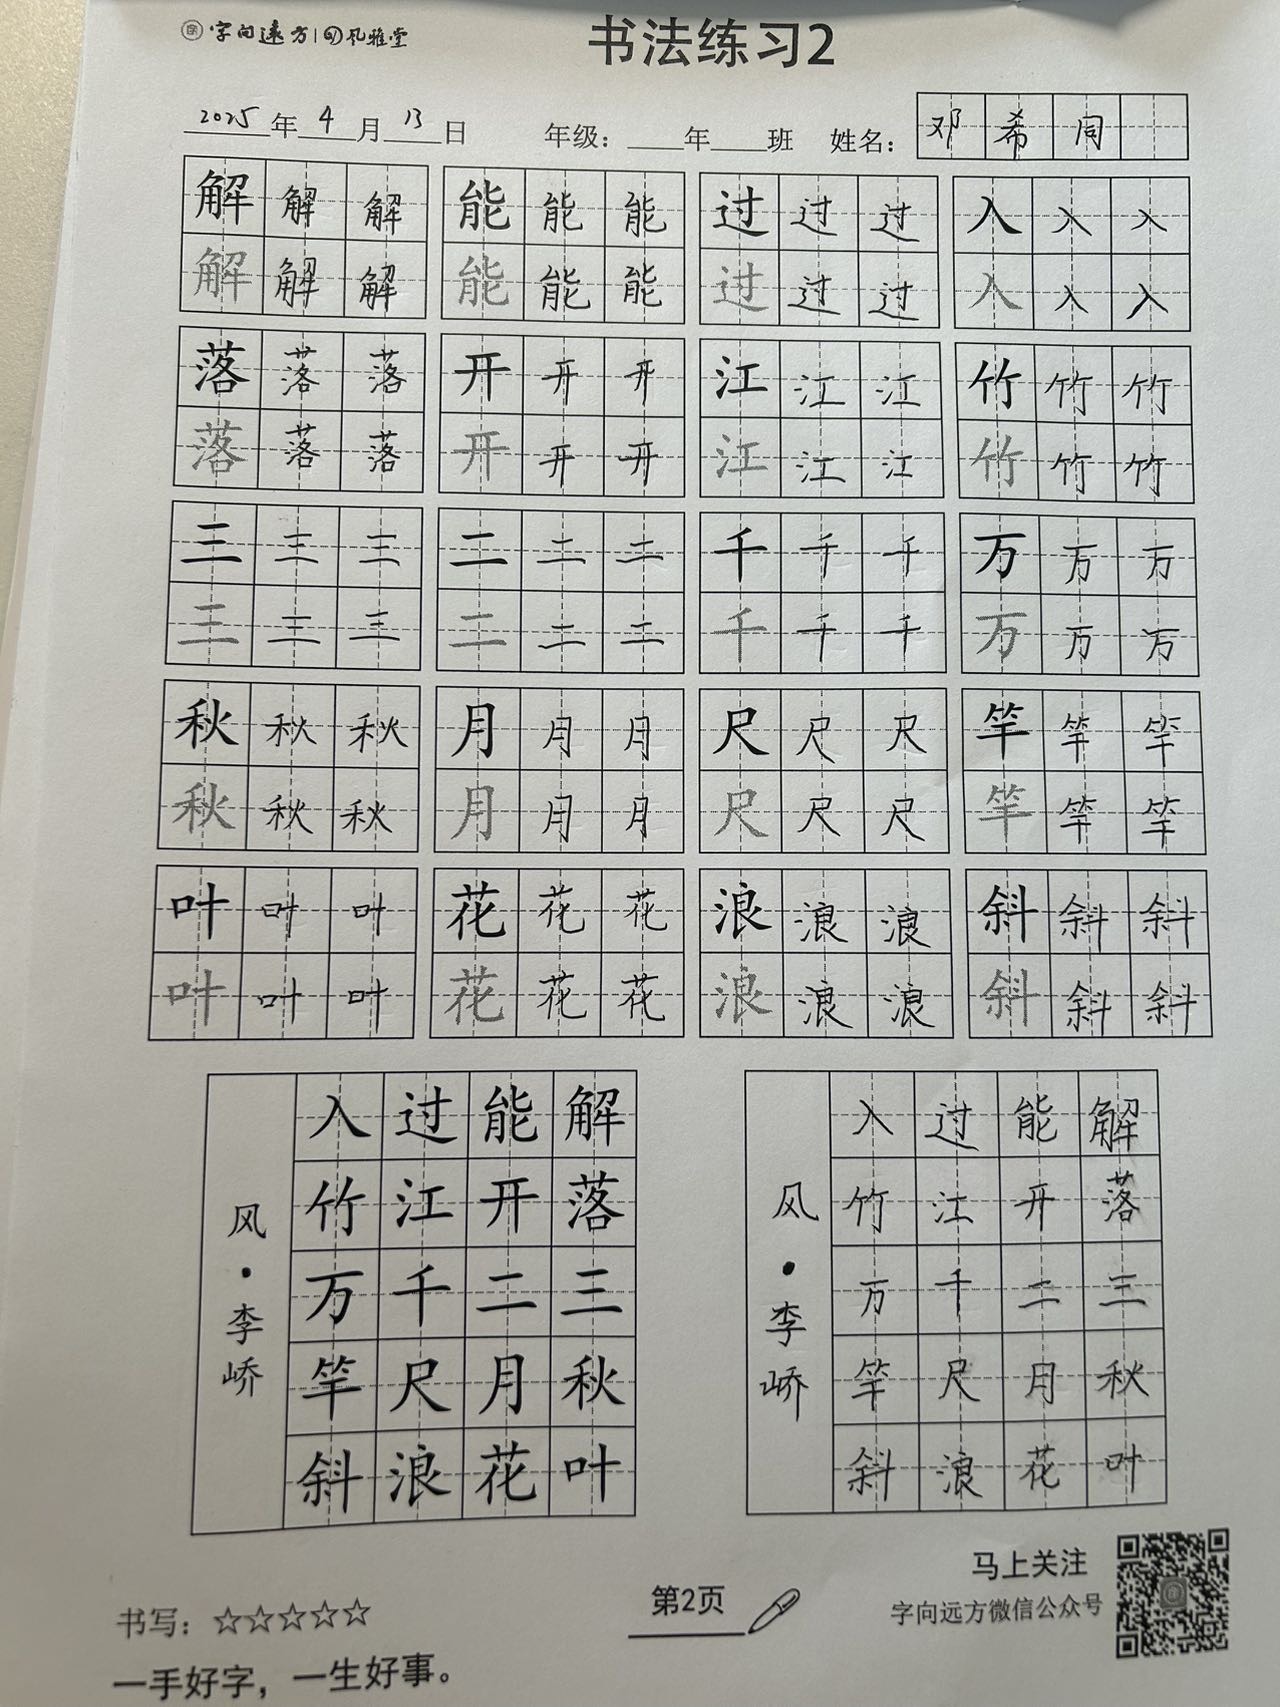 字向远方 风雅堂
书法练习2
2025年4月13日 年级：___年___班 姓名：邓希同
解解解 能能能 过过过 入入入
解解解 能能能 过过过 入入入
落落落 开开开 江江江 竹竹竹
落落落 开开开 江江江 竹竹竹
三三三 二二二 千千千 万万万
三三三 二二二 千千千 万万万
秋秋秋 月月月 尺尺尺 竿竿竿
秋秋秋 月月月 尺尺尺 竿竿竿
叶叶叶 花花花 浪浪浪 斜斜斜
叶叶叶 花花花 浪浪浪 斜斜斜
解落三秋叶
能开二月花
过江千尺浪
入竹万竿斜
风·李峤
解落三秋叶
能开二月花
过江千尺浪
入竹万竿斜
风·李峤
书写：☆☆☆☆☆
一手好字，一生好事。
第2页
马上关注
字向远方微信公众号